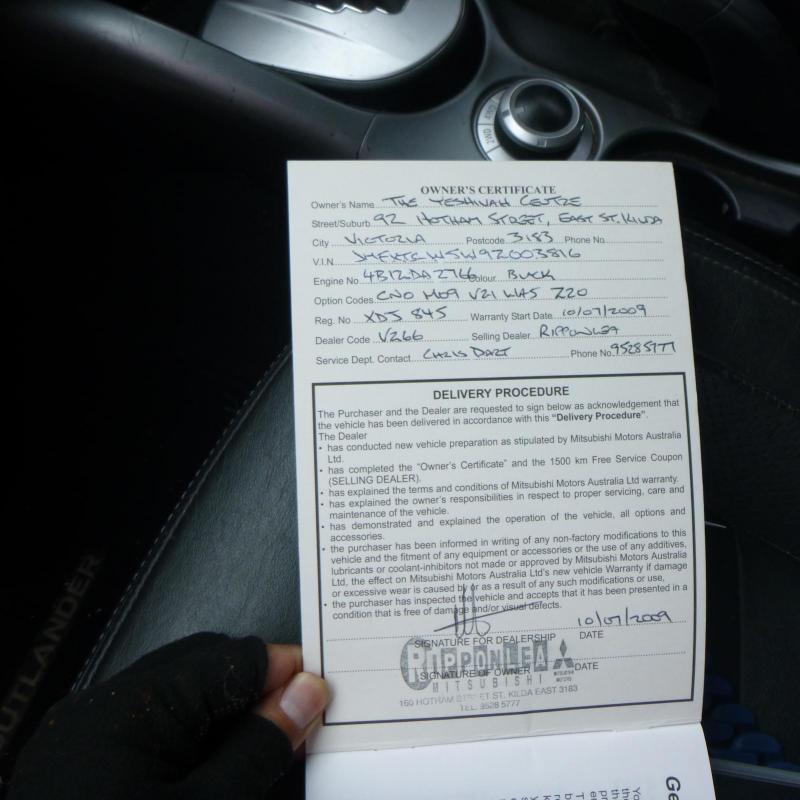 2WD 4WD
OWNER'S CERTIFICATE
Owner's Name THE YESHIVAH CENTRE
Street/Suburb 92 HOTHAM STREET, EAST ST. KILDA
City VICTORIA Postcode 3183 Phone No
V.I.N
Engine No 4B12DA2766 Colour BLACK
Option Codes CNO M09 V21 Z20
Reg. No XDJ 845 Warranty Start Date 10/07/2009
Dealer Code V266 Selling Dealer RIPPONLEA
Service Dept. Contact CHRIS DART Phone No. 95285777
DELIVERY PROCEDURE
The Purchaser and the Dealer are requested to sign below as acknowledgement that
the vehicle has been delivered in accordance with this "Delivery Procedure".
The Dealer
• has conducted new vehicle preparation as stipulated by Mitsubishi Motors Australia
Ltd.
• has completed the "Owner's Certificate" and the 1500 km Free Service Coupon
(SELLING DEALER).
• has explained the terms and conditions of Mitsubishi Motors Australia Ltd warranty.
• has explained the owner's responsibilities in respect to proper servicing, care and
maintenance of the vehicle.
• has demonstrated and explained the operation of the vehicle, all options and
accessories.
• the purchaser has been informed in writing of any non-factory modifications to this
vehicle and the fitment of any equipment or accessories or the use of any additives,
lubricants or coolant-inhibitors not made or approved by Mitsubishi Motors Australia
Ltd, the effect on Mitsubishi Motors Australia Ltd's new vehicle Warranty if damage
or excessive wear is caused by or as a result of any such modifications or use,
• the purchaser has inspected the vehicle and accepts that it has been presented in a
condition that is free of damage and/or visual defects.
10/07/2009
SIGNATURE FOR DEALERSHIP DATE
RIPPONLEA
SIGNATURE OF OWNER DATE
MITSUBISHI MITSUBISHI MOTORS
160 HOTHAM STREET ST. KILDA EAST 3183
TEL. 9528 5777
OUTLANDER
Ge